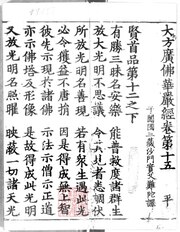 大方廣佛華嚴經卷第十五 平
于闐國三藏沙門實叉難陀譯
賢首品第十二之下
有勝三昧名安樂 能普救度諸群生
放大光明不思議 令其見者悉調伏
所放光明名善現 若有衆生遇此光
必令獲益不唐捐 因是得成無上智
彼先示現於諸佛 示法示僧示正道
亦示佛塔及形像 是故得成此光明
又放光明名照耀 映蔽一切諸天光